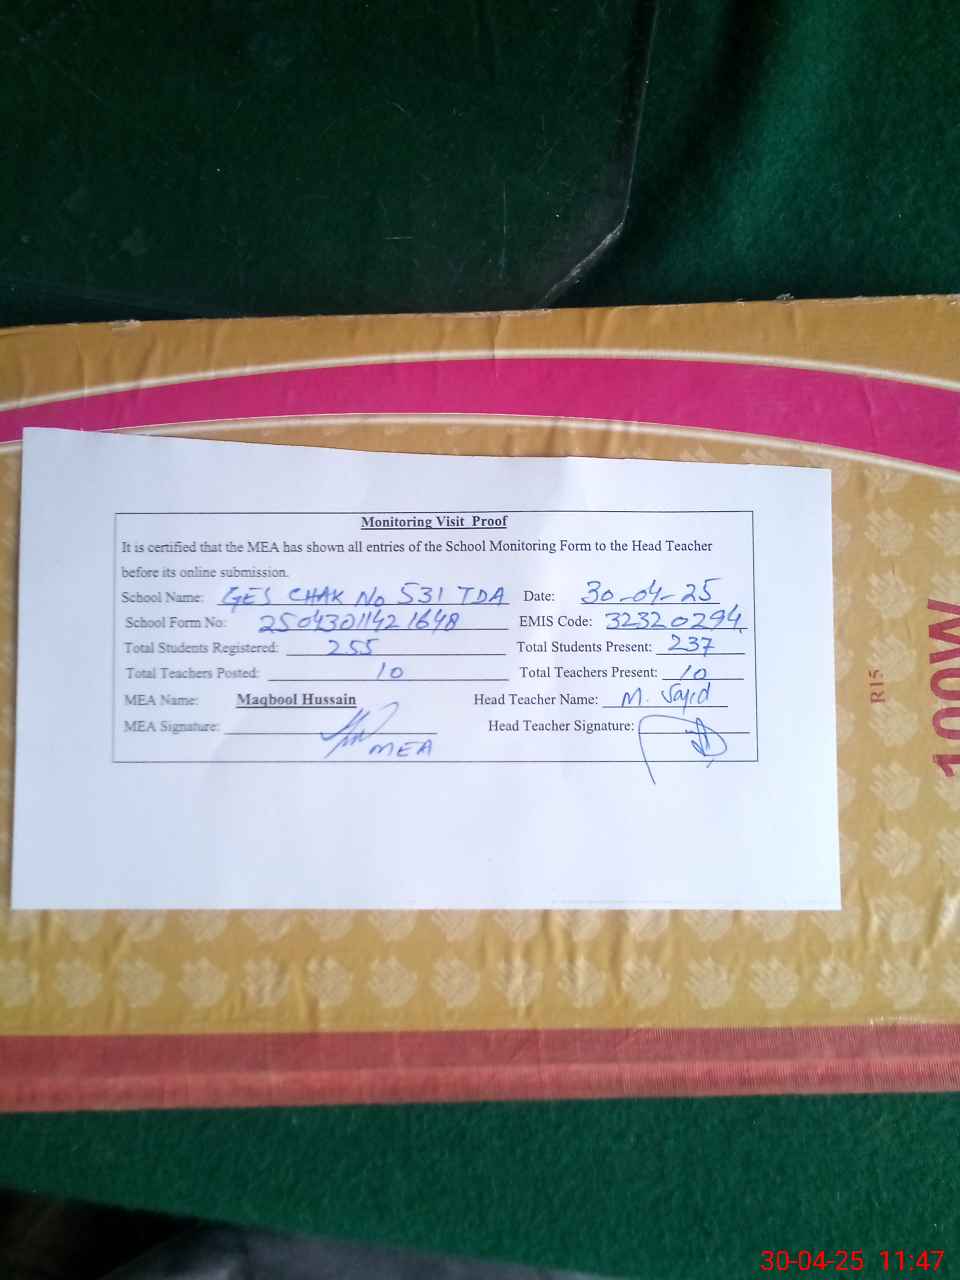 Monitoring Visit Proof
It is certified that the MEA has shown all entries of the School Monitoring Form to the Head Teacher
before its online submission.
School Name: GES CHAK No 531 TDA Date: 30-04-25
School Form No: 2504301142 1648 EMIS Code: 32320294
Total Students Registered: 255 Total Students Present: 237
Total Teachers Posted: 10 Total Teachers Present: 10
MEA Name: Maqbool Hussain Head Teacher Name: M. Sajid
MEA Signature: Head Teacher Signature:
MEA
R15
100W
30-04-25 11:47